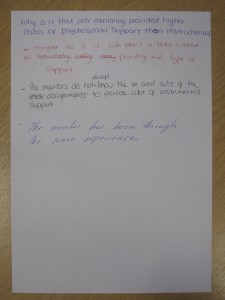 Why is it that peer mentoring provided higher
levels of psychosocial support than instrumental
- maybe as it is with peers & less focused
on providing that type of
support
always
- The mentors do not know the in and outs of the
assignments to provide a lot of instrumental
support
- The mentor has been through
the same experience